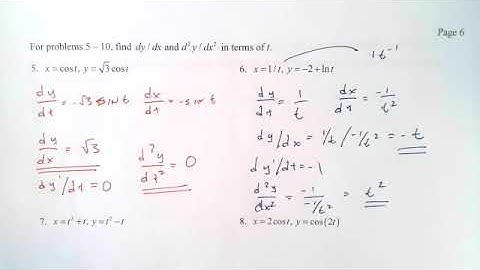 Page 6
For problems 5 – 10, find dy / dx and d²y / dx² in terms of t.
5. x = cos t, y = √3 cos t
dy/dt = -√3 sin t   dx/dt = -sin t
dy/dx = √3
dy'/dt = 0   d²y/dx² = 0
6. x = 1/t, y = –2 + ln t   1t⁻¹
dy/dt = 1/t   dx/dt = -1/t²
dy/dx = 1/t / -1/t² = -t
dy'/dt = -1
d²y/dx² = -1/-1/t² = t²
7. x = t³ + t, y = t² – t
8. x = 2cos t, y = cos(2t)